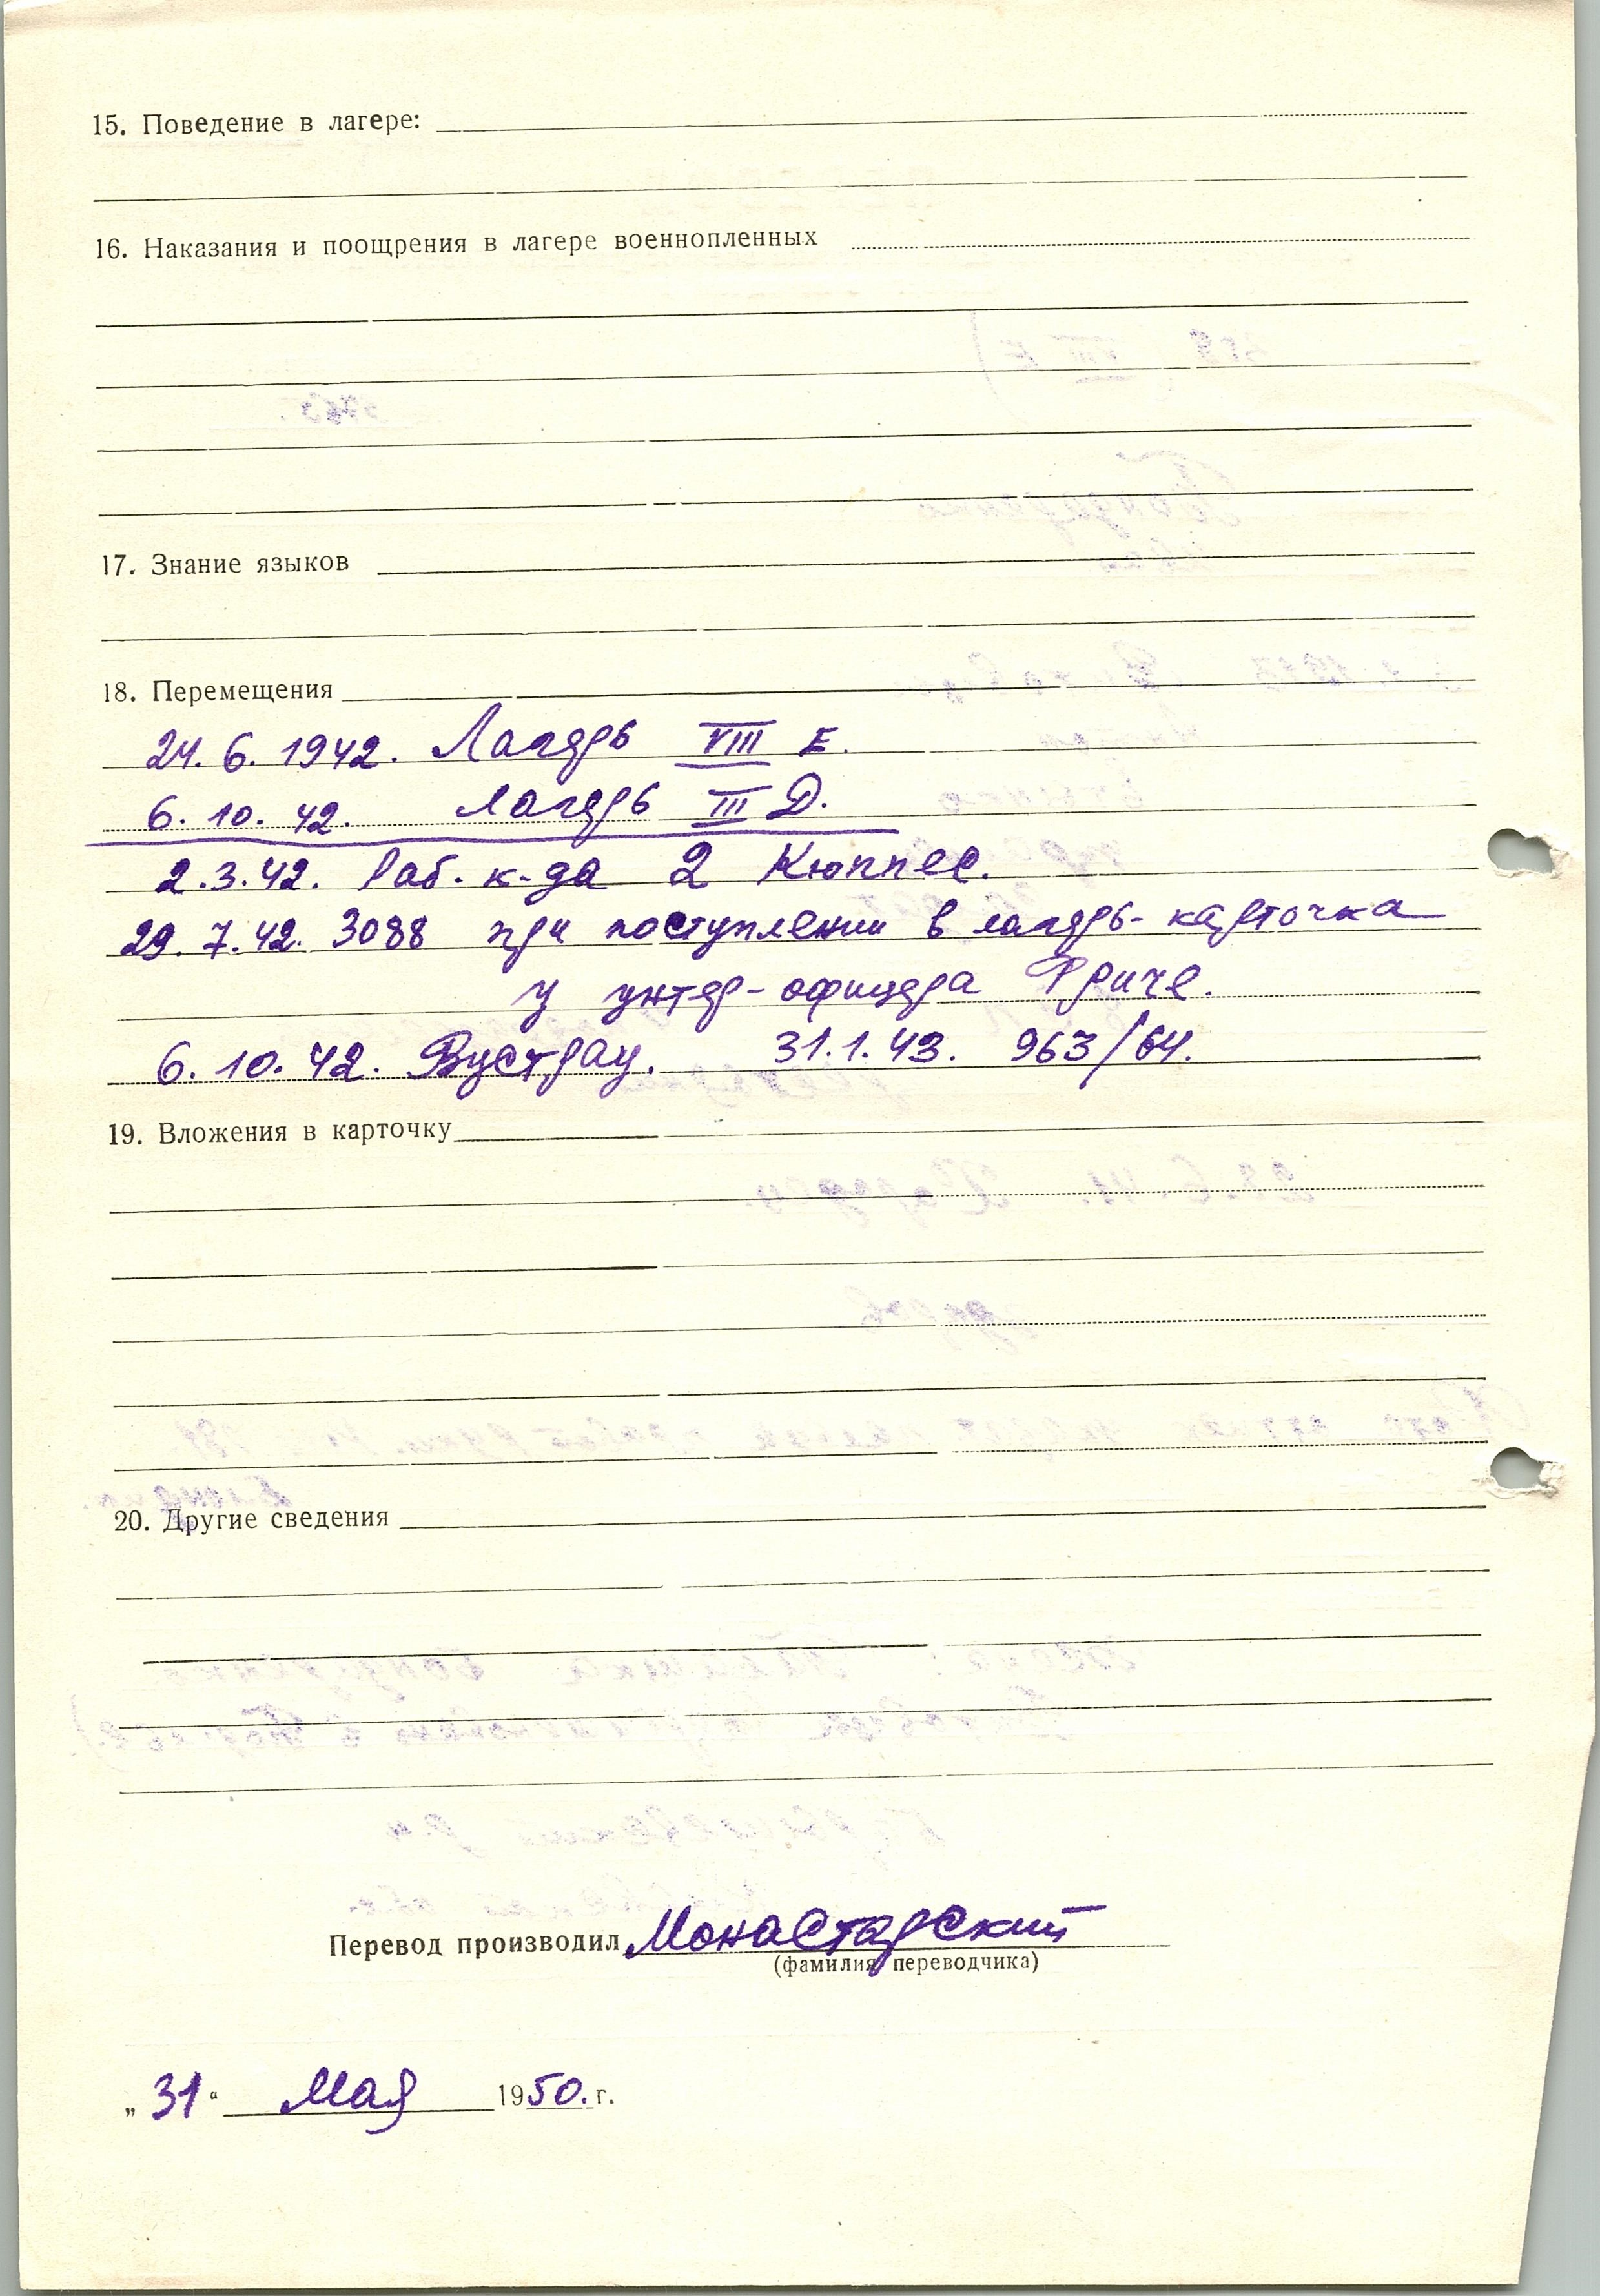 15. Поведение в лагере:
16. Наказания и поощрения в лагере военнопленных
17. Знание языков
18. Перемещения
24. 6. 1942. Лагерь VIII Е.
6. 10. 42. Лагерь III Д.
2.3.42. Раб. к-да 2 Кюппес.
29. 7. 42. 3088 при поступлении в лагерь - карточка
у унтер-офицера Фриче.
6. 10. 42. Вустрау. 31.1.43. 963/64.
19. Вложения в карточку
20. Другие сведения
Перевод производил Монастарский
(фамилия переводчика)
„ 31 “ Мая 1950. г.